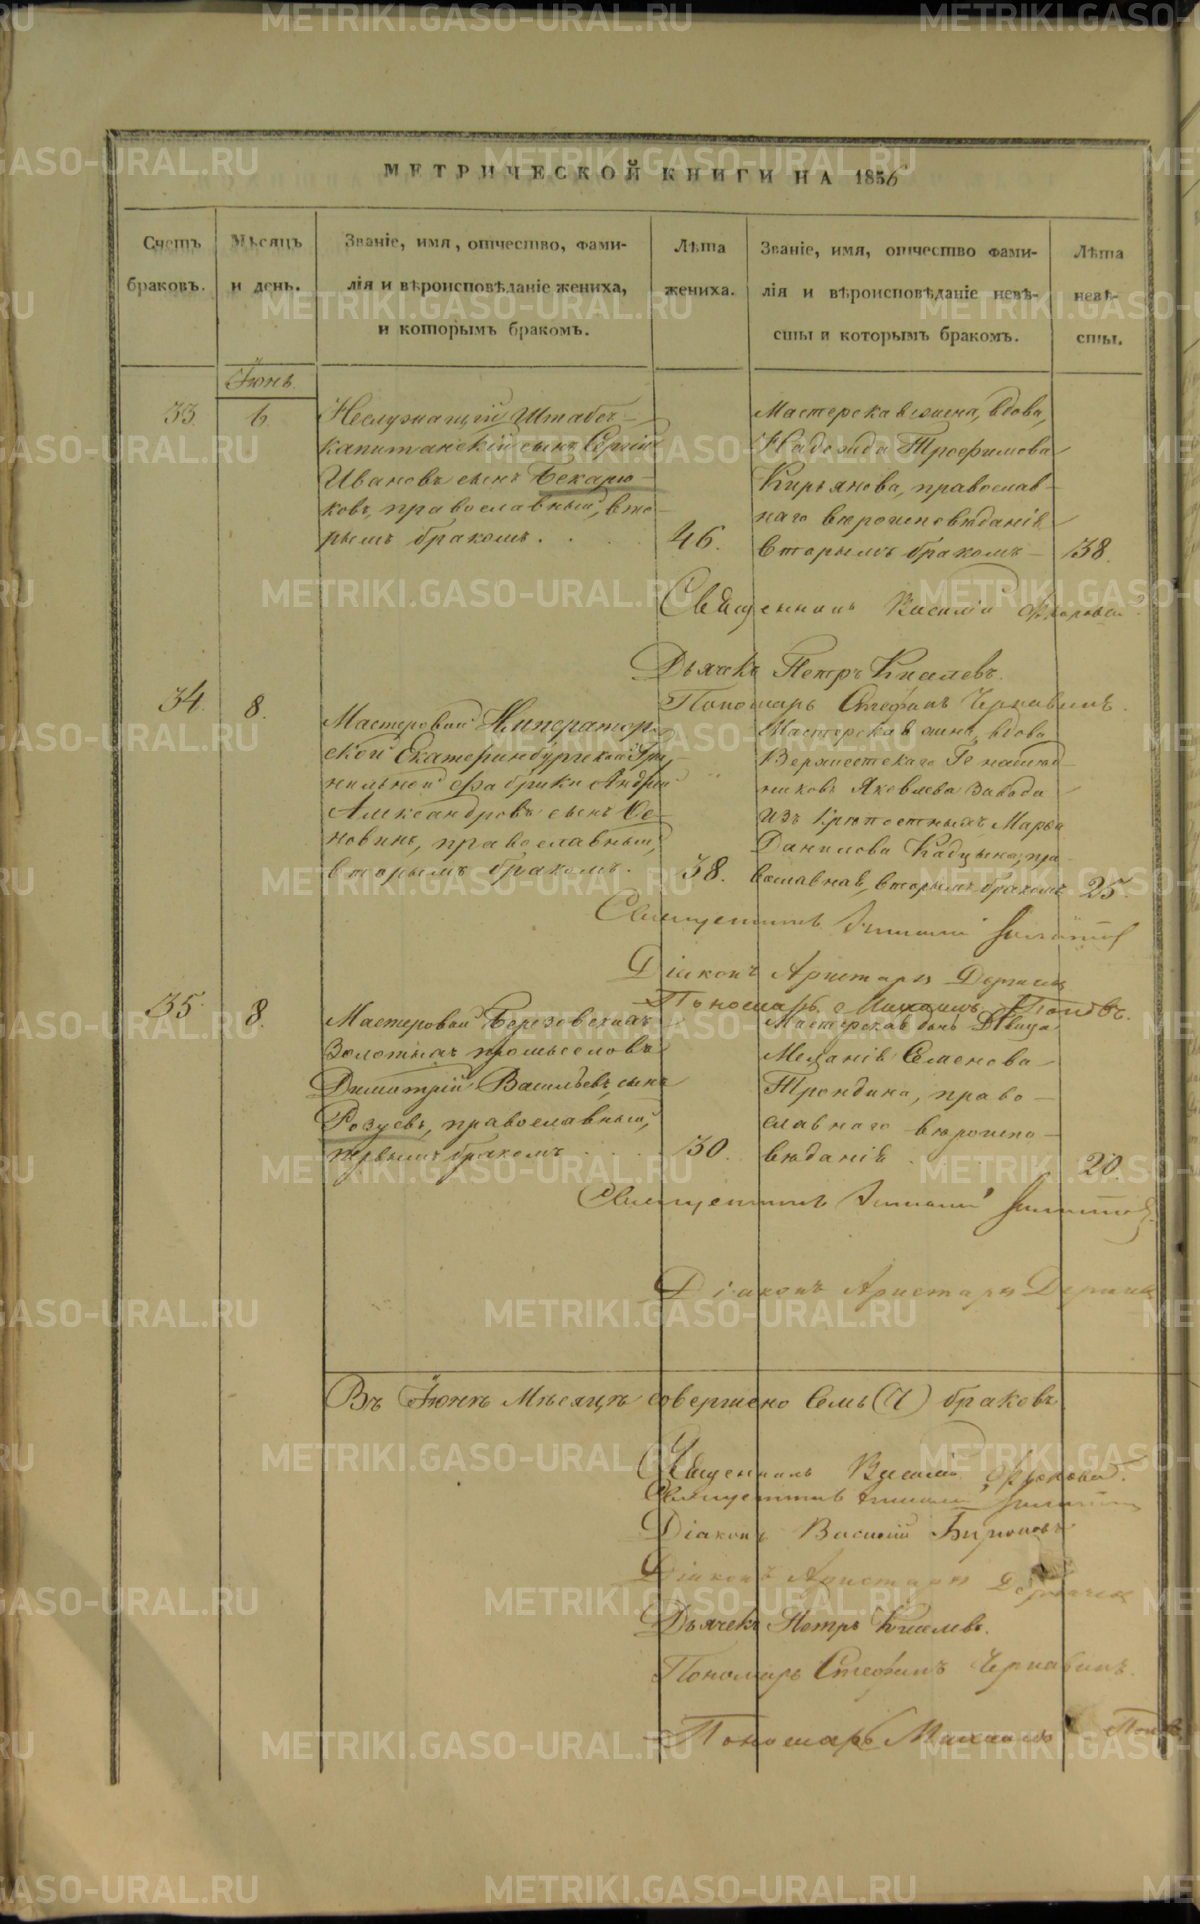 МЕТРИЧЕСКОЙ КНИГИ НА 1856
Счетъ браковъ.
Мѣсяцъ и день.
Званіе, имя, отчество, фами-
лія и вѣроисповѣданіе жениха,
и которымъ бракомъ.
Лѣта жениха.
Званіе, имя, отчество фами-
лія и вѣроисповѣданіе невѣ-
сты и которымъ бракомъ.
Лѣта невѣ-
сты.
Іюнь.
33.
6.
Неслужащій Штабсъ-
капитанскій сынъ Сергій
Ивановъ сынъ Бекарю-
ковъ, православный, вто-
рымъ бракомъ.
46.
Мастерская жена, вдова,
Надежда Трофимова
Кирьянова, православ-
наго вѣроисповѣданія
вторымъ бракомъ
38.
Священникъ Василій
Дьячекъ Петръ Киселевъ.
Пономарь Стефанъ Чернавинъ.
34.
8.
Мастеровой Император-
ской Екатеринбургской Гра-
нильной Фабрики Андрей
Александровъ сынъ Се-
новинъ, православный,
вторымъ бракомъ.
38.
Мастерская жена, вдова
Верхисетскаго Гг наслѣд-
никовъ Яковлева Завода
изъ крѣпостныхъ Марья
Данилова Кадцына, пра-
вославная, вторымъ бракомъ
25.
Священникъ
Діаконъ Аристархъ
Пономарь Михаилъ Поповъ.
35.
8.
Мастеровой Березовскихъ
Золотыхъ промысловъ
Димитрій Васильевъ сынъ
Розуевъ, православный,
первымъ бракомъ
30.
Мастерская дочь Дѣвица
Меланія Семенова
Трондина, право-
славнаго вѣроиспо-
вѣданія
20.
Священникъ
Діаконъ Аристархъ
Въ Іюнѣ Мѣсяцѣ совершено Семь (7) браковъ.
Священникъ Василій
Священникъ
Діаконъ Василій Бирюковъ
Діаконъ Аристархъ
Дьячекъ Петръ Киселевъ.
Пономарь Стефанъ Чернавинъ.
Пономарь Михаилъ Поповъ
METRIKI.GASO-URAL.RU